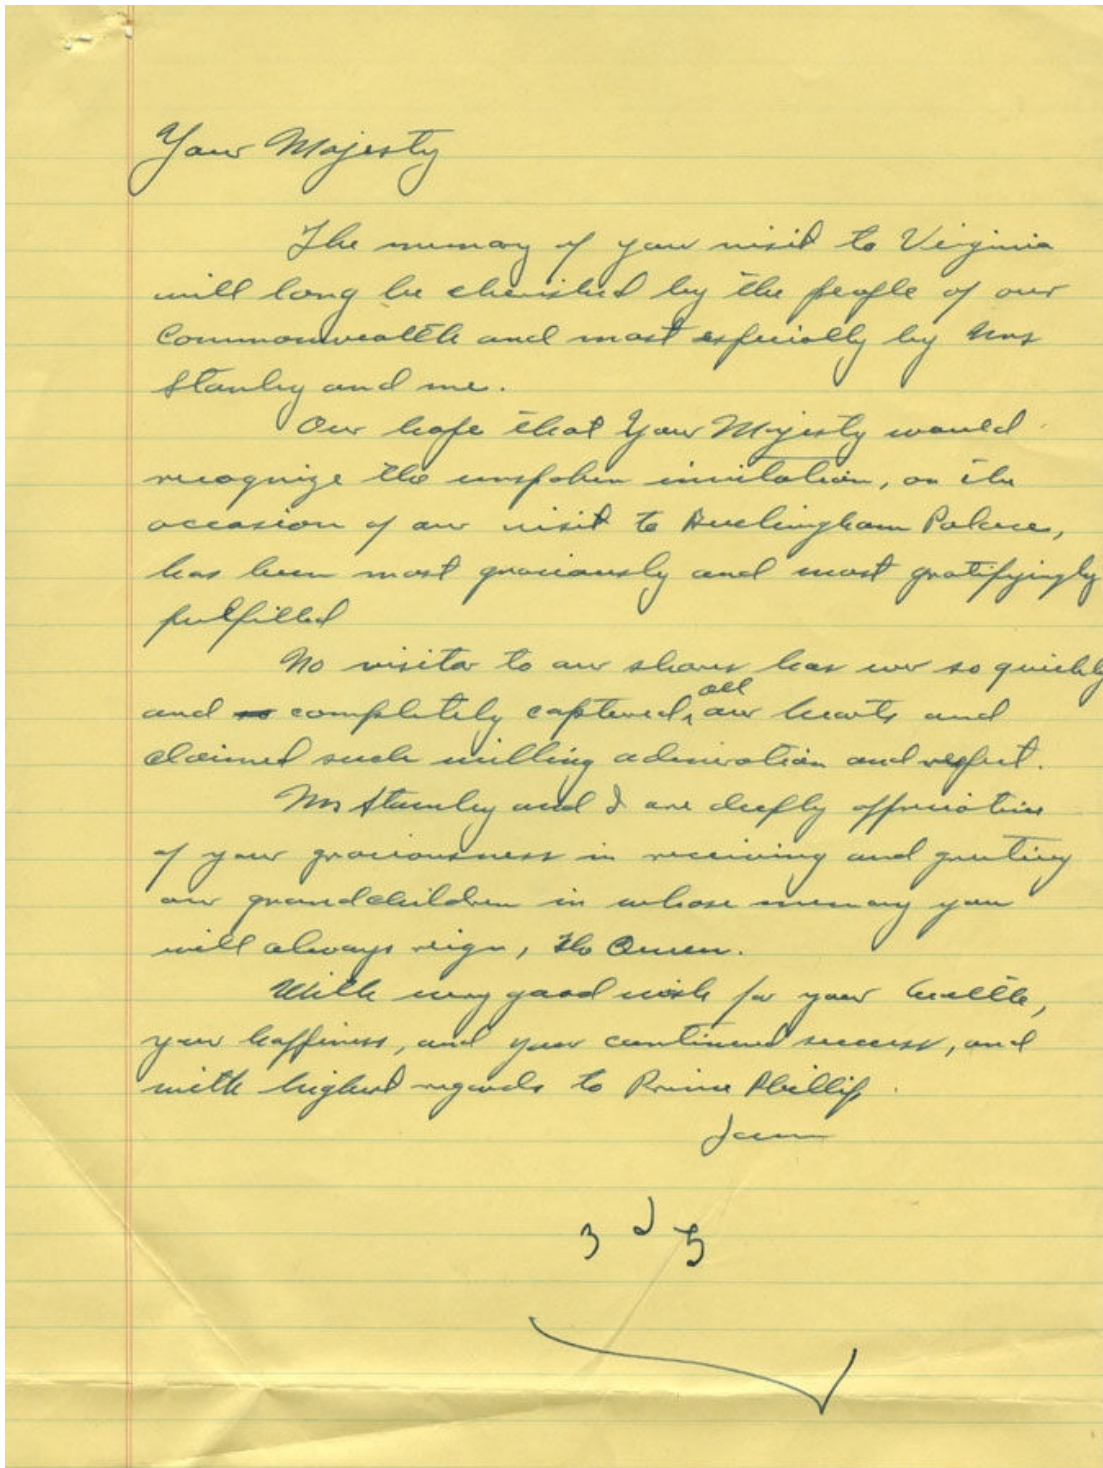 Your Majesty
The memory of your visit to Virginia
will long be cherished by the people of our
Commonwealth and most especially by Mrs
Stanley and me.
Our hope that Your Majesty would
recognize the unspoken invitation, on the
occasion of our visit to Buckingham Palace,
has been most graciously and most gratifyingly
fulfilled
No visitor to our shores has ever so quickly
and completely captured all our hearts and
claimed such willing admiration and respect.
Mrs Stanley and I are deeply appreciative
of your graciousness in receiving and greeting
our grandchildren in whose memory you
will always reign, the Queen.
With every good wish for your health,
your happiness, and your continued success, and
with highest regards to Prince Phillip.